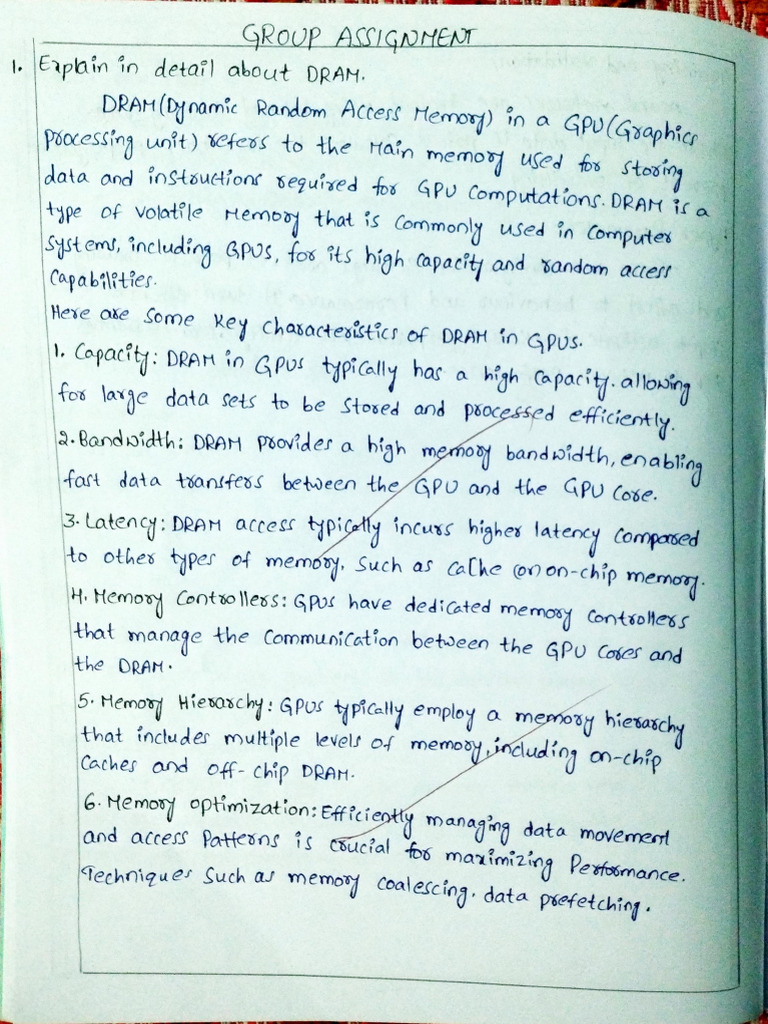 GROUP ASSIGNMENT
1. Explain in detail about DRAM.
DRAM(Dynamic Random Access Memory) in a GPU(Graphics
Processing unit) refers to the Main memory used for storing
data and instructions required for GPU computations. DRAM is a
type of volatile Memory that is commonly used in computer
systems, including GPUS, for its high capacity and random access
capabilities.
Here are some key characteristics of DRAM in GPUs.
1. Capacity: DRAM in GPUs typically has a high capacity. allowing
for large data sets to be stored and processed efficiently.
2. Bandwidth: DRAM provides a high memory bandwidth, enabling
fast data transfers between the GPU and the GPU core.
3. Latency: DRAM access typically incurs higher latency compared
to other types of memory, such as cache (or) on-chip memory.
4. Memory Controllers: GPUs have dedicated memory controllers
that manage the communication between the GPU cores and
the DRAM.
5. Memory Hierarchy: GPUs typically employ a memory hierarchy
that includes multiple levels of memory, including on-chip
caches and off-chip DRAM.
6. Memory optimization: Efficiently managing data movement
and access Patterns is crucial for maximizing Performance.
Techniques such as memory coalescing, data prefetching.